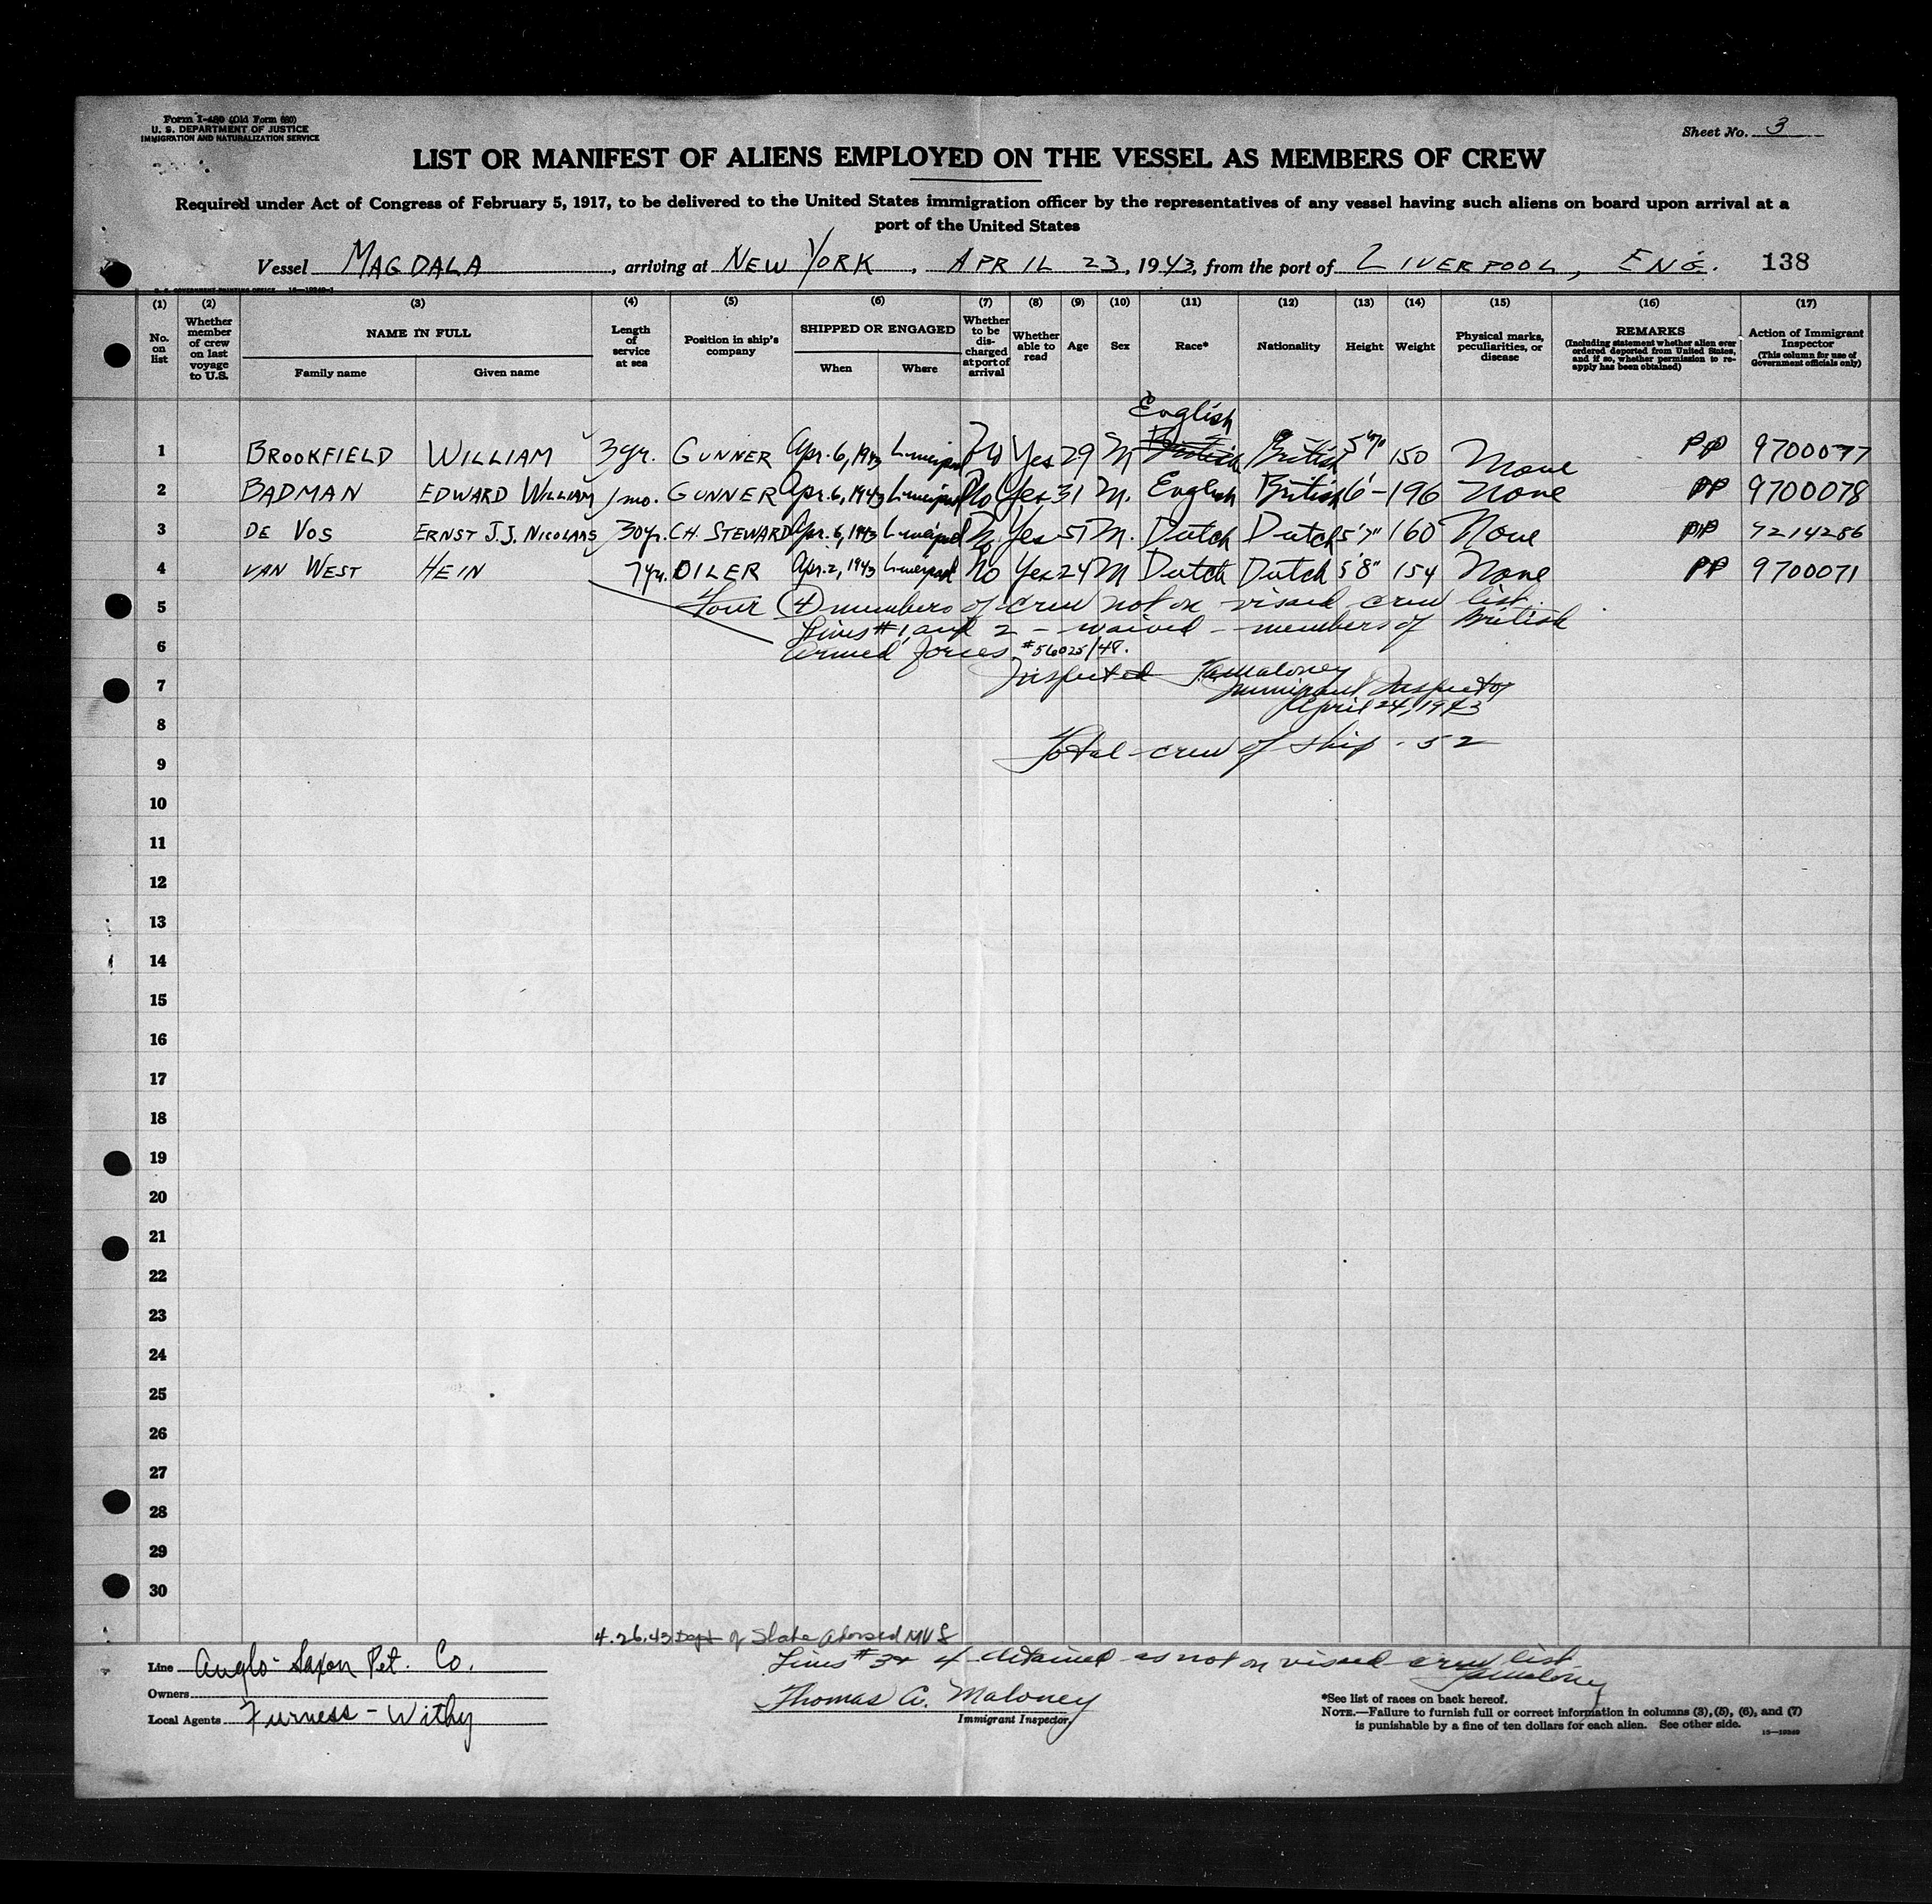 Form I-480 (Old Form 680)
U. S. DEPARTMENT OF JUSTICE
IMMIGRATION AND NATURALIZATION SERVICE
Sheet No. 3
LIST OR MANIFEST OF ALIENS EMPLOYED ON THE VESSEL AS MEMBERS OF CREW
Required under Act of Congress of February 5, 1917, to be delivered to the United States immigration officer by the representatives of any vessel having such aliens on board upon arrival at a
port of the United States
Vessel MAGDALA, arriving at NEW YORK, APRIL 23, 1943, from the port of LIVERPOOL, ENG. 138
(1) (2) (3) (4) (5) (6) (7) (8) (9) (10) (11) (12) (13) (14) (15) (16) (17)
No. on list
Whether member of crew on last voyage to U.S.
NAME IN FULL
Family name Given name
Length of service at sea
Position in ship's company
SHIPPED OR ENGAGED
When Where
Whether to be discharged at port of arrival
Whether able to read
Age
Sex
Race*
Nationality
Height
Weight
Physical marks, peculiarities, or disease
REMARKS
(Including statement whether alien ever ordered deported from United States, and if so, whether permission to reapply has been obtained)
Action of Immigrant Inspector
(This column for use of Government officials only)
English
1 BROOKFIELD WILLIAM 3yr. GUNNER Apr. 6, 1943 Liverpool No Yes 29 M British British 5'7" 150 None PP 9700077
2 BADMAN EDWARD WILLIAM 1 mo. GUNNER Apr. 6, 1943 Liverpool No Yes 31 M. English British 6'- 196 None PP 9700078
3 DE VOS ERNST J.J. NICOLAAS 30yr. CH. STEWARD Apr. 6, 1943 Liverpool No Yes 57 M. Dutch Dutch 5'7" 160 None PP 7214286
4 VAN WEST HEIN 7yr. OILER Apr. 2, 1943 Liverpool No Yes 24 M Dutch Dutch 5'8" 154 None PP 9700071
5 Four (4) members of crew not on visaed crew list.
Lines #1 and 2 - waived - members of British
6 Armed forces #56025/48.
7 Inspected T.A. Maloney
Immigrant Inspector
April 24, 1943
8
9 Total crew of ship - 52
10
11
12
13
14
15
16
17
18
19
20
21
22
23
24
25
26
27
28
29
30
4.26.43 Dept of State
Lines #3 & 4 detained as not on visaed crew list
TAMaloney
Line Anglo-Saxon Pet. Co.
Owners
Local Agents Furness-Withy
Thomas A. Maloney
Immigrant Inspector
*See list of races on back hereof.
NOTE.—Failure to furnish full or correct information in columns (3), (5), (6), and (7)
is punishable by a fine of ten dollars for each alien. See other side.